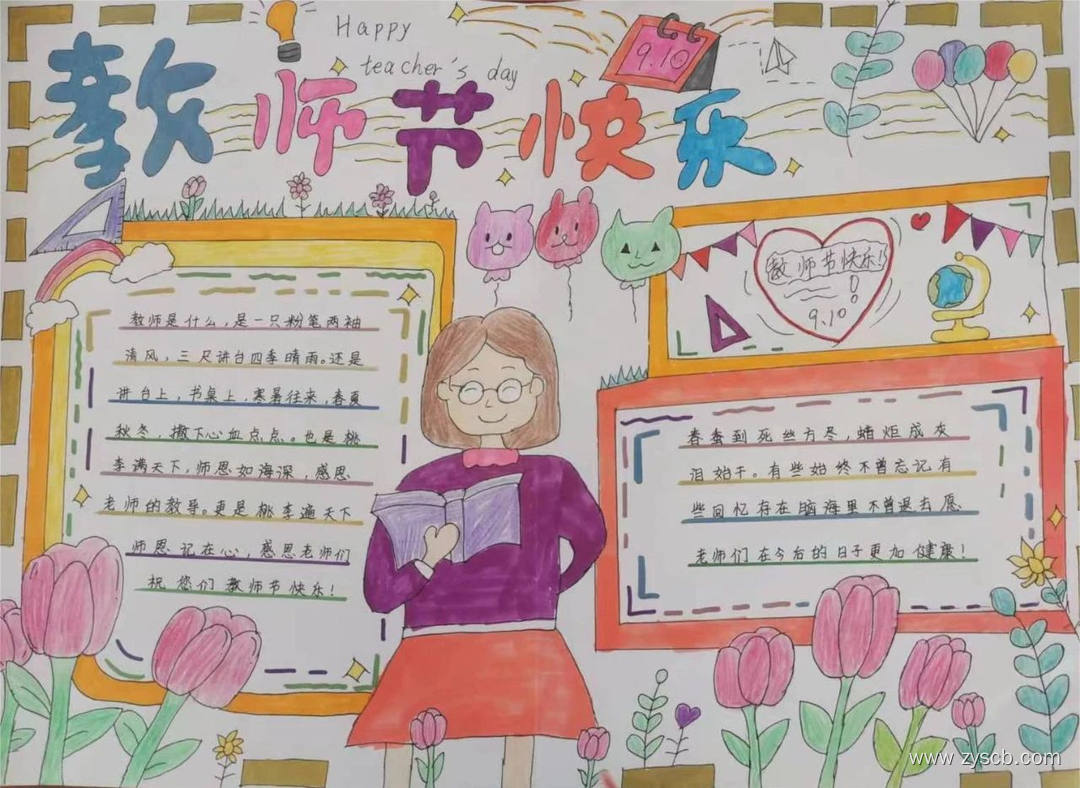 Happy
teacher's day
9.10
教师节快乐
教师是什么,是一只粉笔两袖
清风,三尺讲台四季晴雨。还是
讲台上,书桌上,寒暑往来,春夏
秋冬,撒下心血点点。也是桃
李满天下,师恩如海深,感恩
老师的教导。更是桃李遍天下
师恩记在心,感恩老师们
祝您们教师节快乐!
教师节快乐!
9.10
春蚕到死丝方尽,蜡炬成灰
泪始干。有些始终不曾忘记有
些回忆存在脑海里不曾退去愿
老师们在今后的日子更加健康!
www.zyscb.com